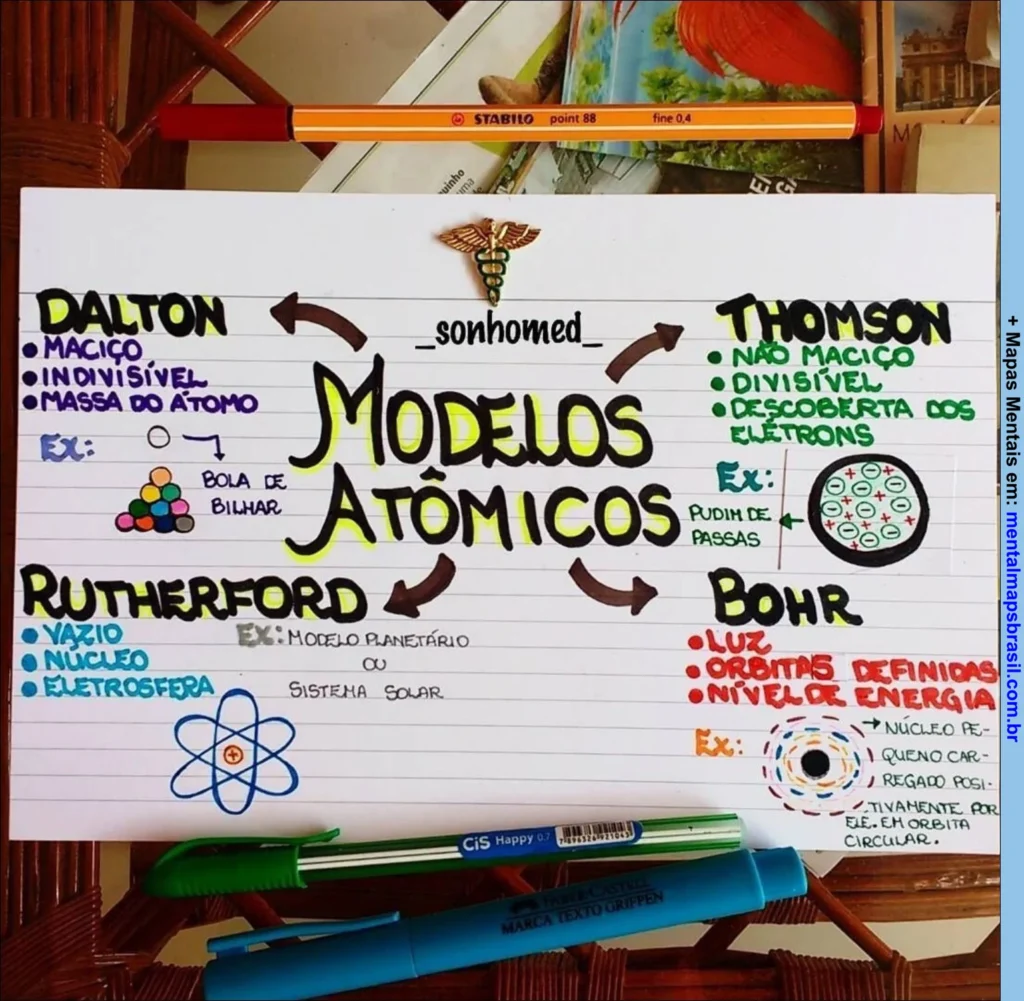 STABILO point 88 fine 0,4
quinho
uma
_sonhomed_
MODELOS
ATÔMICOS
DALTON
• MACIÇO
• INDIVISÍVEL
• MASSA DO ÁTOMO
EX:
BOLA DE
BILHAR
THOMSON
• NÃO MACIÇO
• DIVISÍVEL
• DESCOBERTA DOS
ELÉTRONS
EX:
PUDIM DE
PASSAS
RUTHERFORD
• VAZIO
• NÚCLEO
• ELETROSFERA
EX: MODELO PLANETÁRIO
OU
SISTEMA SOLAR
BOHR
• LUZ
• ORBITAS DEFINIDAS
• NÍVEL DE ENERGIA
EX:
NÚCLEO PE-
QUENO CAR-
REGADO POSI-
TIVAMENTE POR
ELE. EM ORBITA
CIRCULAR.
CiS Happy 0.7
7896326921045
FABER-CASTELL
MARCA TEXTO GRIFPEN
+ Mapas Mentais em: mentalmapsbrasil.com.br